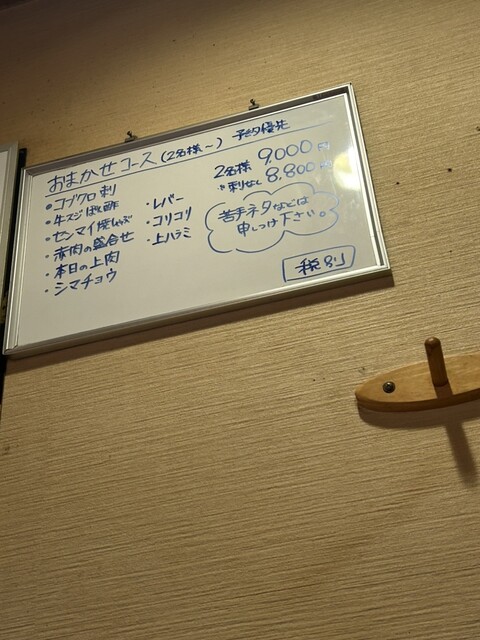 おまかせコース (2名様〜) 予約優先
・コブクロ刺
・牛スジぽん酢
・センマイ焼しゃぶ
・赤肉の盛合せ
・本日の上肉
・シマチョウ
・レバー
・コリコリ
・上ハラミ
2名様 9,000円
※刺なし 8,800円
苦手ネタなどは
申しつけ下さい。
税別